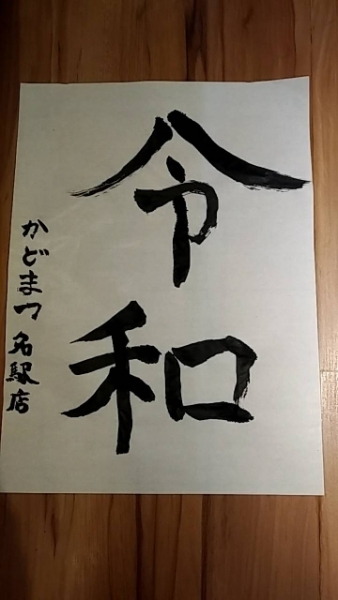 令和
かどまつ 名駅店